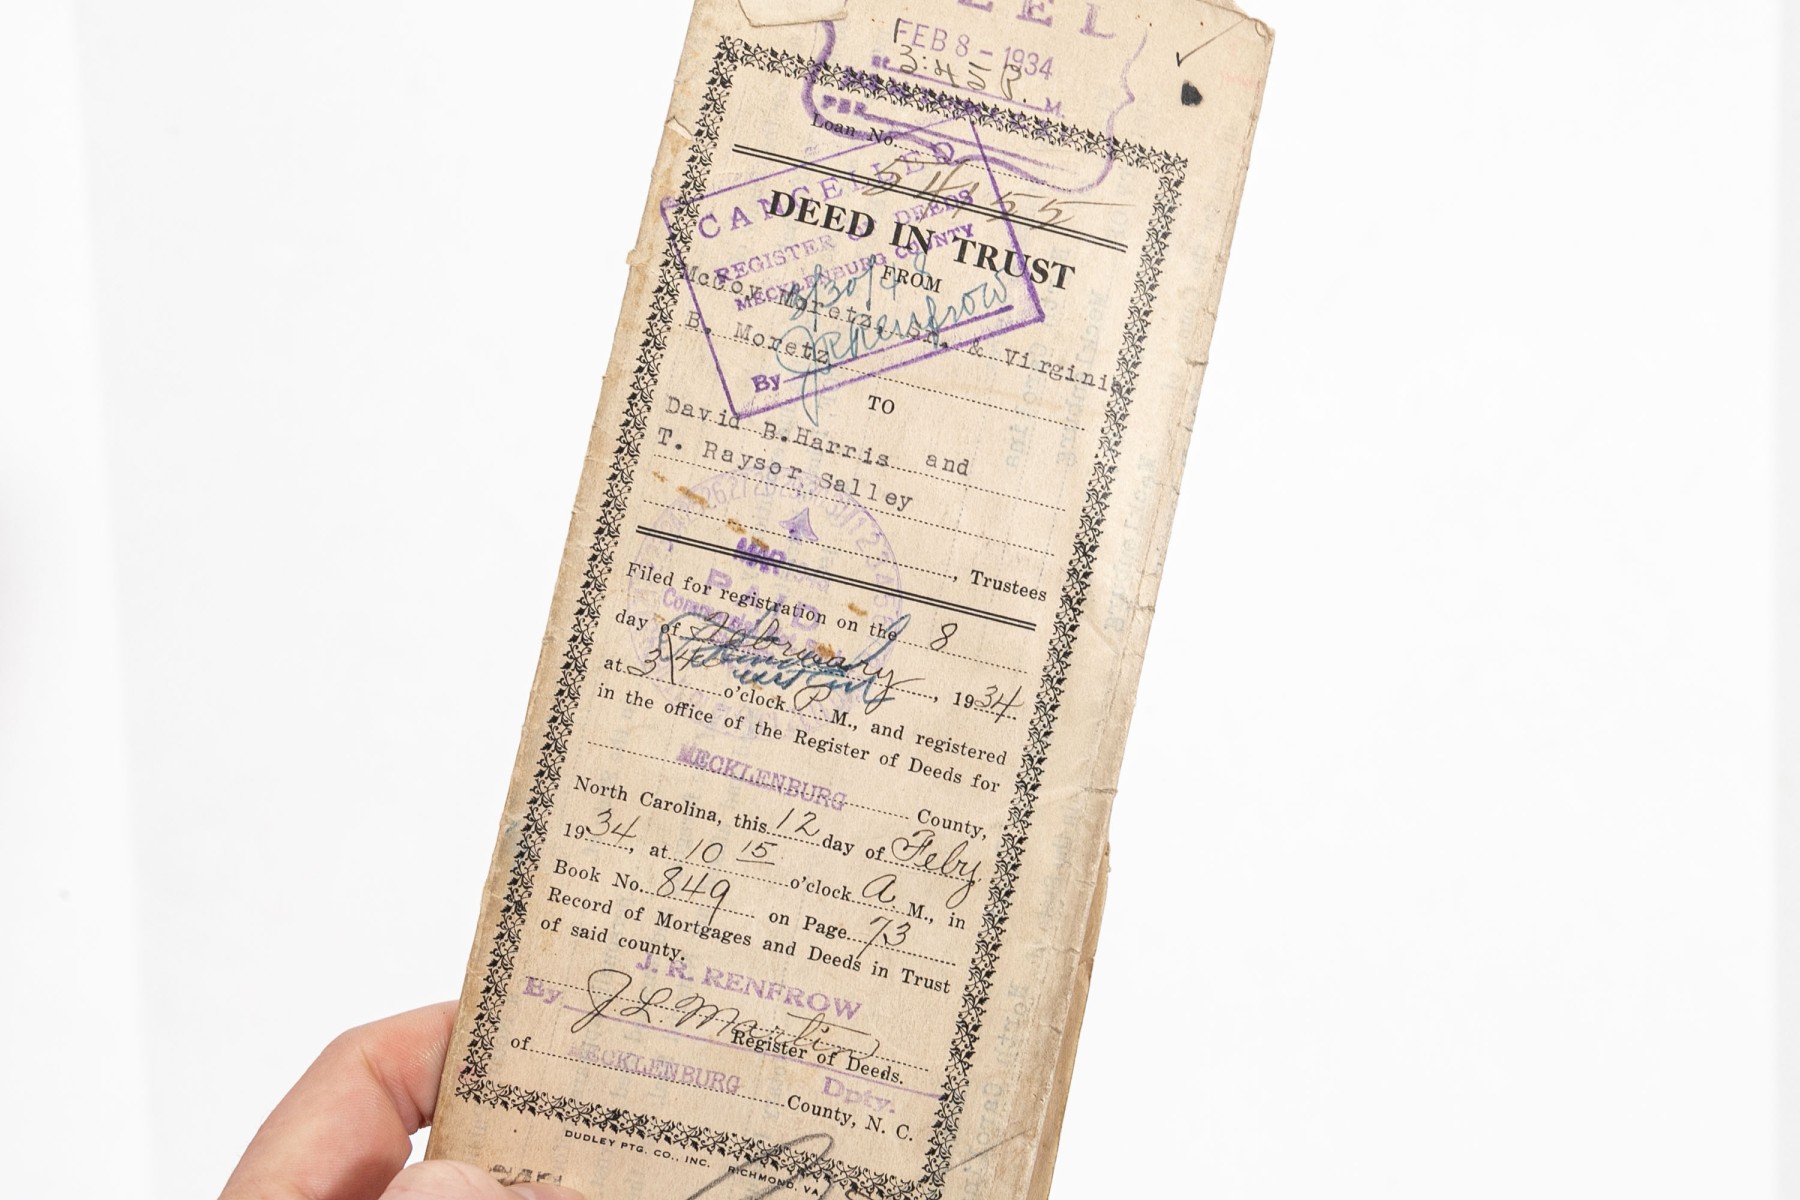 FEB 8 - 1934
at 3:45 P. M.
PER
Loan No.
54455
CANCELLED
REGISTER OF DEEDS
MECKLENBURG COUNTY
By
DEED IN TRUST
FROM
McCoy Moretz, Sr. & Virginia
B. Moretz
TO
David B.Harris and
T. Raysor Salley
, Trustees
MAR
PAID
Filed for registration on the 8
day of February, 1934
at 3/45 o'clock P M., and registered
in the office of the Register of Deeds for
MECKLENBURG County,
North Carolina, this 12 day of Feby
1934, at 10 15 o'clock A. M., in
Book No. 849 on Page 73
Record of Mortgages and Deeds in Trust
of said county.
J. R. RENFROW
By J L. Martin
Register of Deeds.
Dpty.
of MECKLENBURG County, N. C.
DUDLEY PTG. CO., INC. RICHMOND, VA.